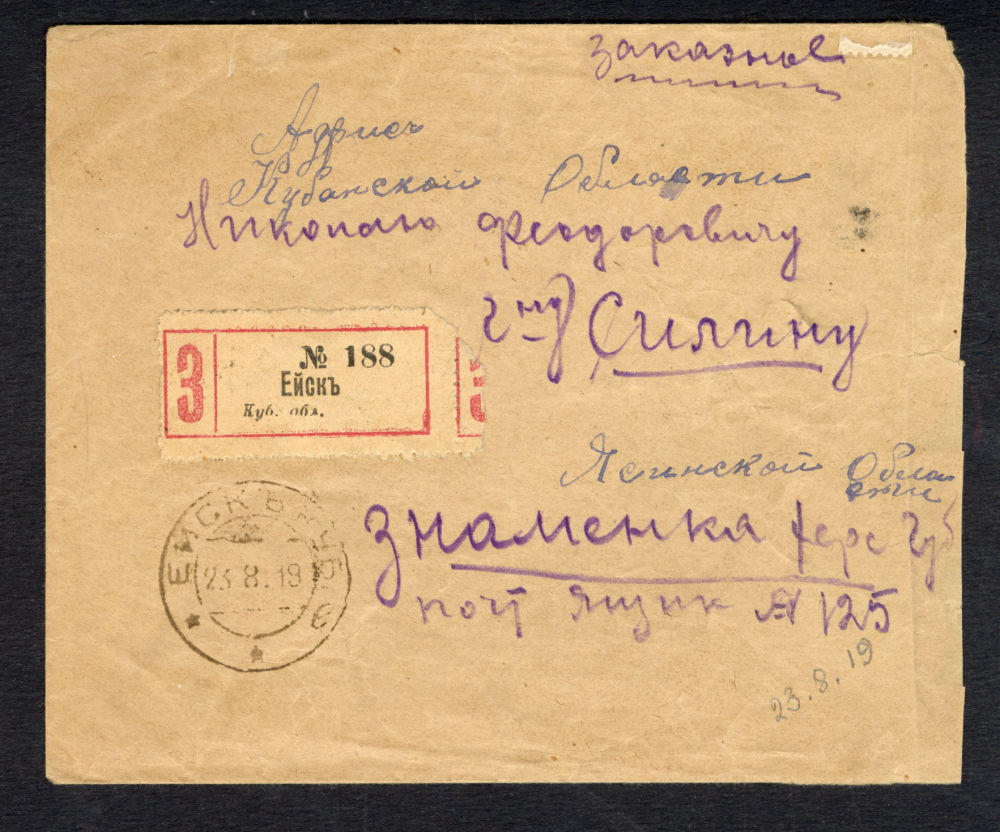 Заказное
Адрись
Кубанской Области
Николаю Феодоровичу
г-ну Силину
З № 188
Ейскъ
Куб. обл.
Области
Знаменка Херс Губ
почт ящик № 125
ЕЙСКЪ КУБ. О
23.8.19
23.8.19